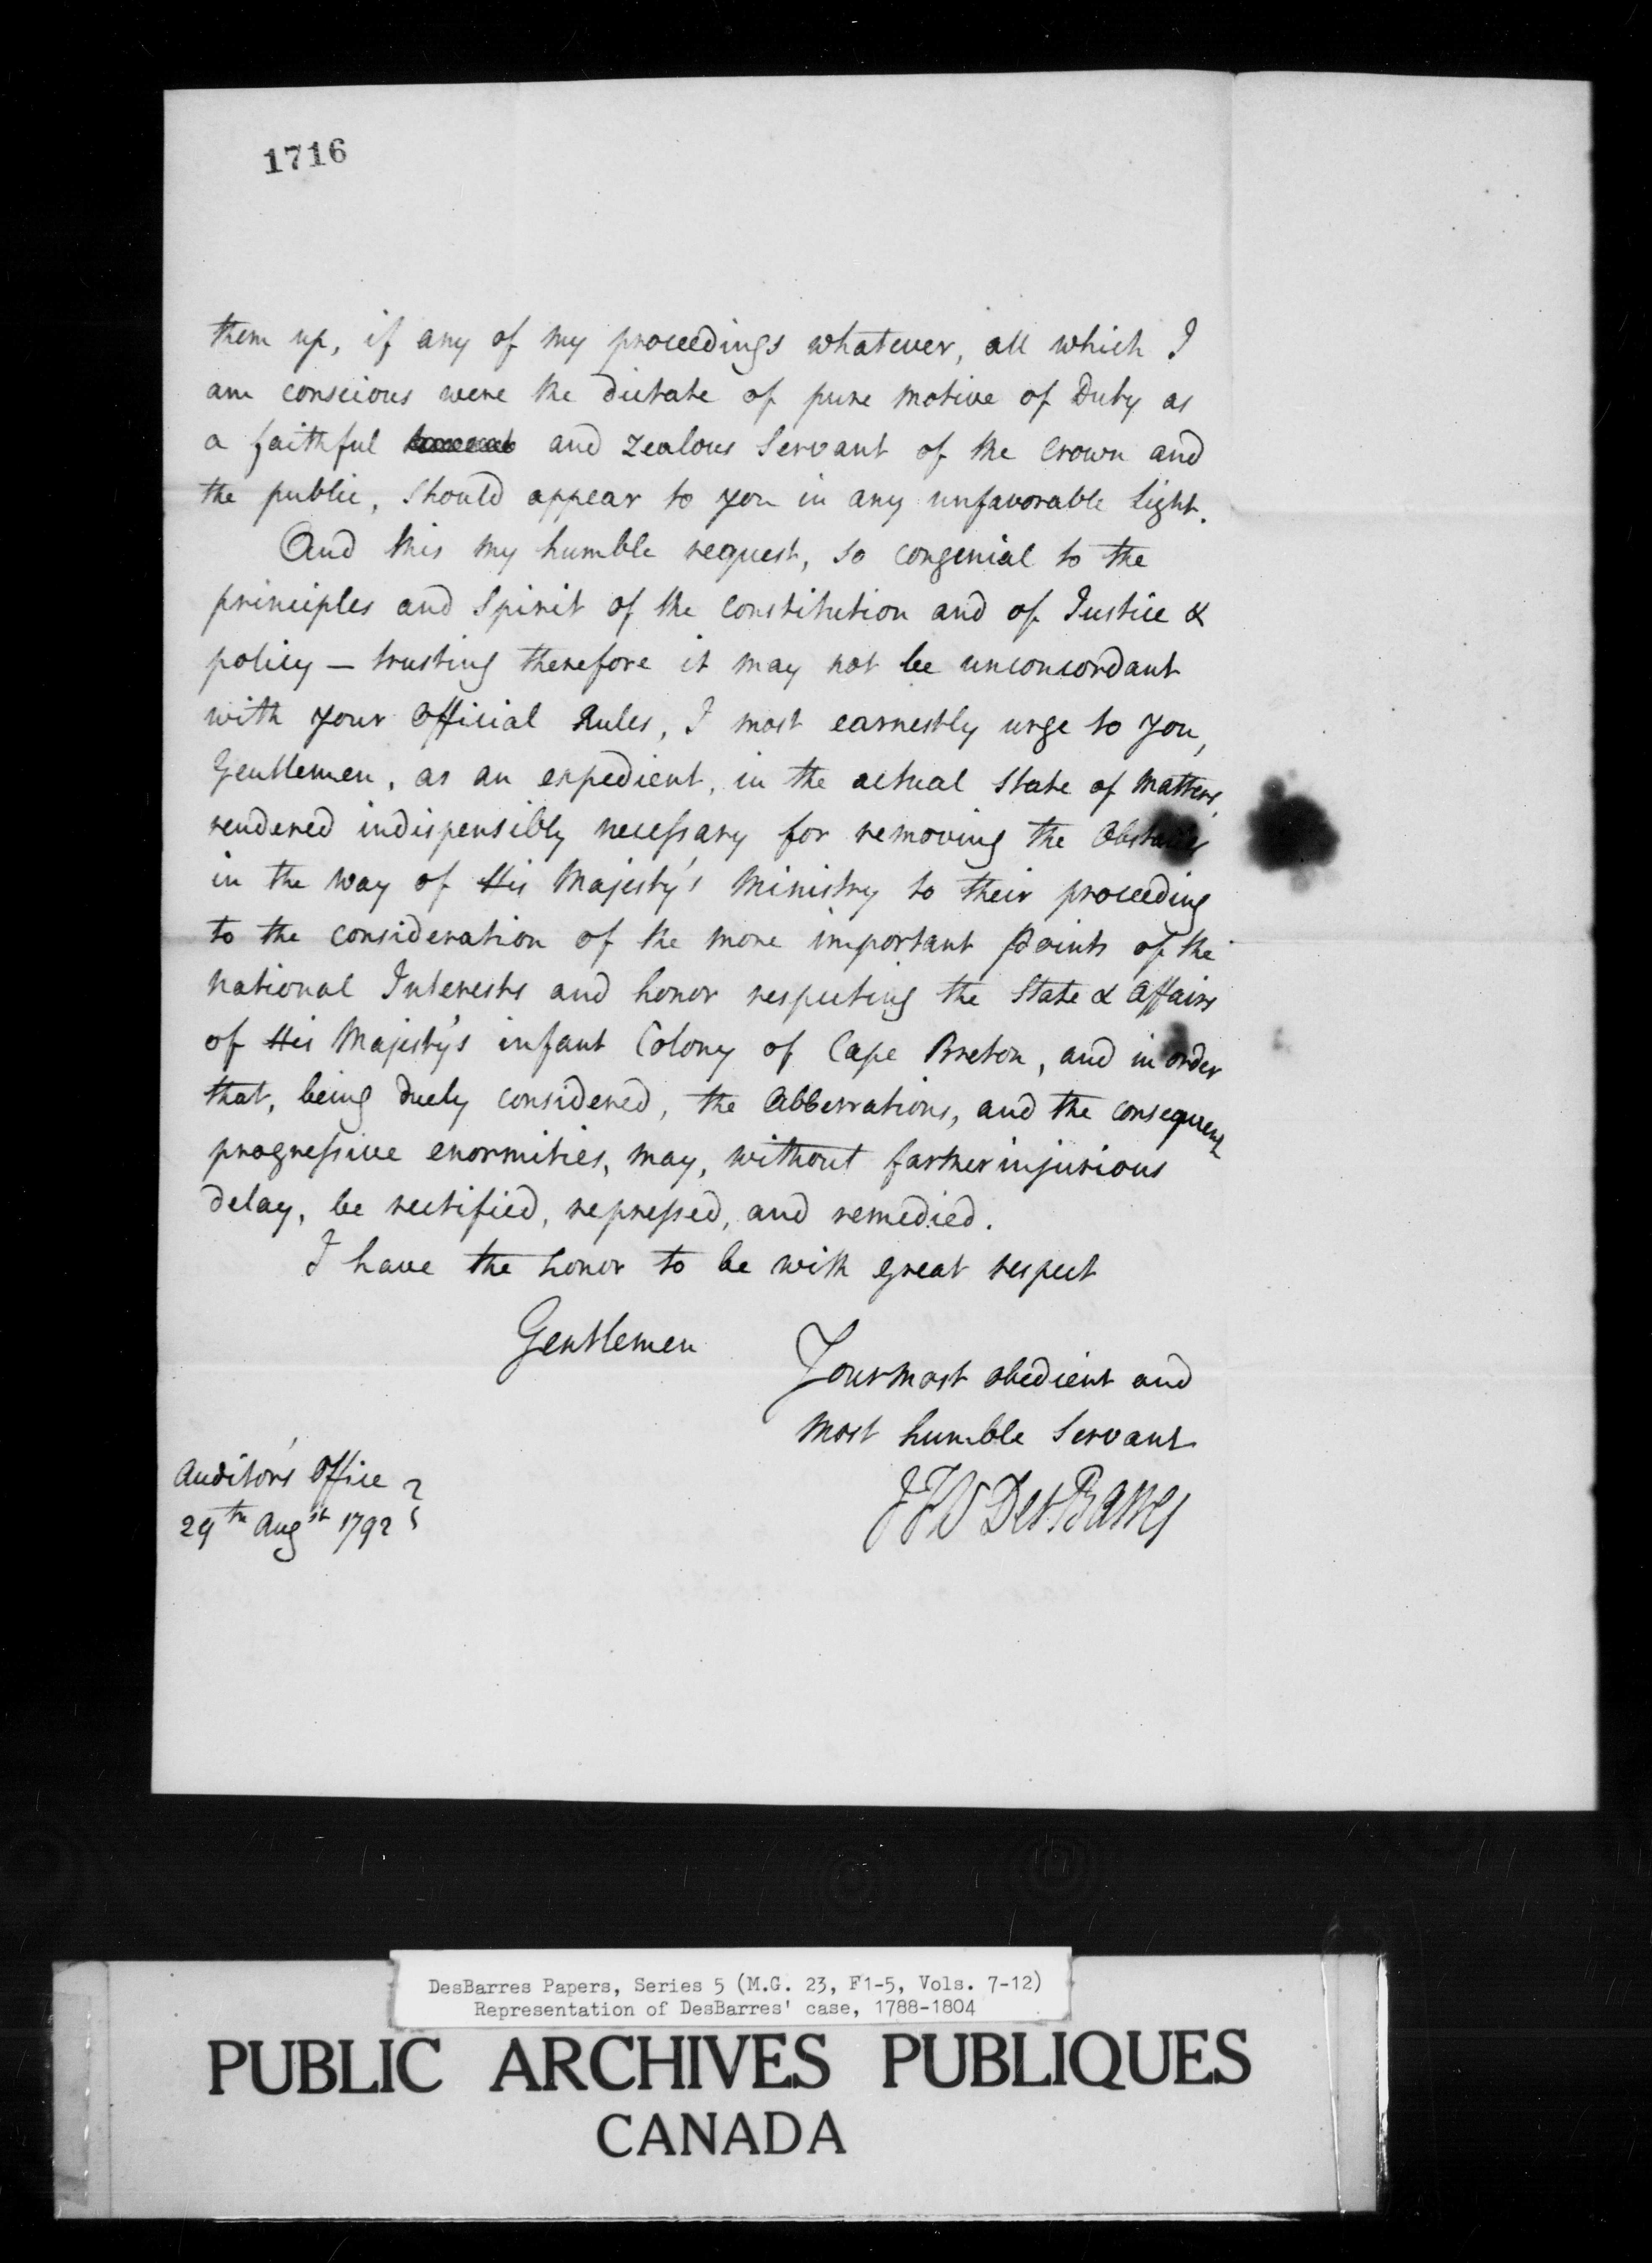 1716
them up, if any of my proceedings whatever, all which I
am conscious were the dictate of pure motive of Duty as
a faithful and zealous Servant of the Crown and
the public, should appear to you in any unfavorable Light.
And this my humble request, so congenial to the
principles and Spirit of the Constitution and of Justice &
policy — trusting therefore it may not be unconcordant
with your Official Rules, I most earnestly urge to you,
Gentlemen, as an expedient, in the actual State of Matters,
rendered indispensibly necessary for removing the Obstacles
in the way of His Majesty's Ministry to their proceeding
to the consideration of the more important Points of the
national Interests and honor respecting the State & Affairs
of His Majesty's infant Colony of Cape Breton, and in order
that, being duely considered, the Abberrations, and the consequent
progressive enormities, may, without farther injurious
delay, be rectified, repressed, and remedied.
I have the honor to be with great respect
Gentlemen
Your most obedient and
most humble Servant
JFW DesBarres
Auditor's Office
29th Augst 1792
DesBarres Papers, Series 5 (M.G. 23, F1-5, Vols. 7-12)
Representation of DesBarres' case, 1788-1804
PUBLIC ARCHIVES PUBLIQUES
CANADA